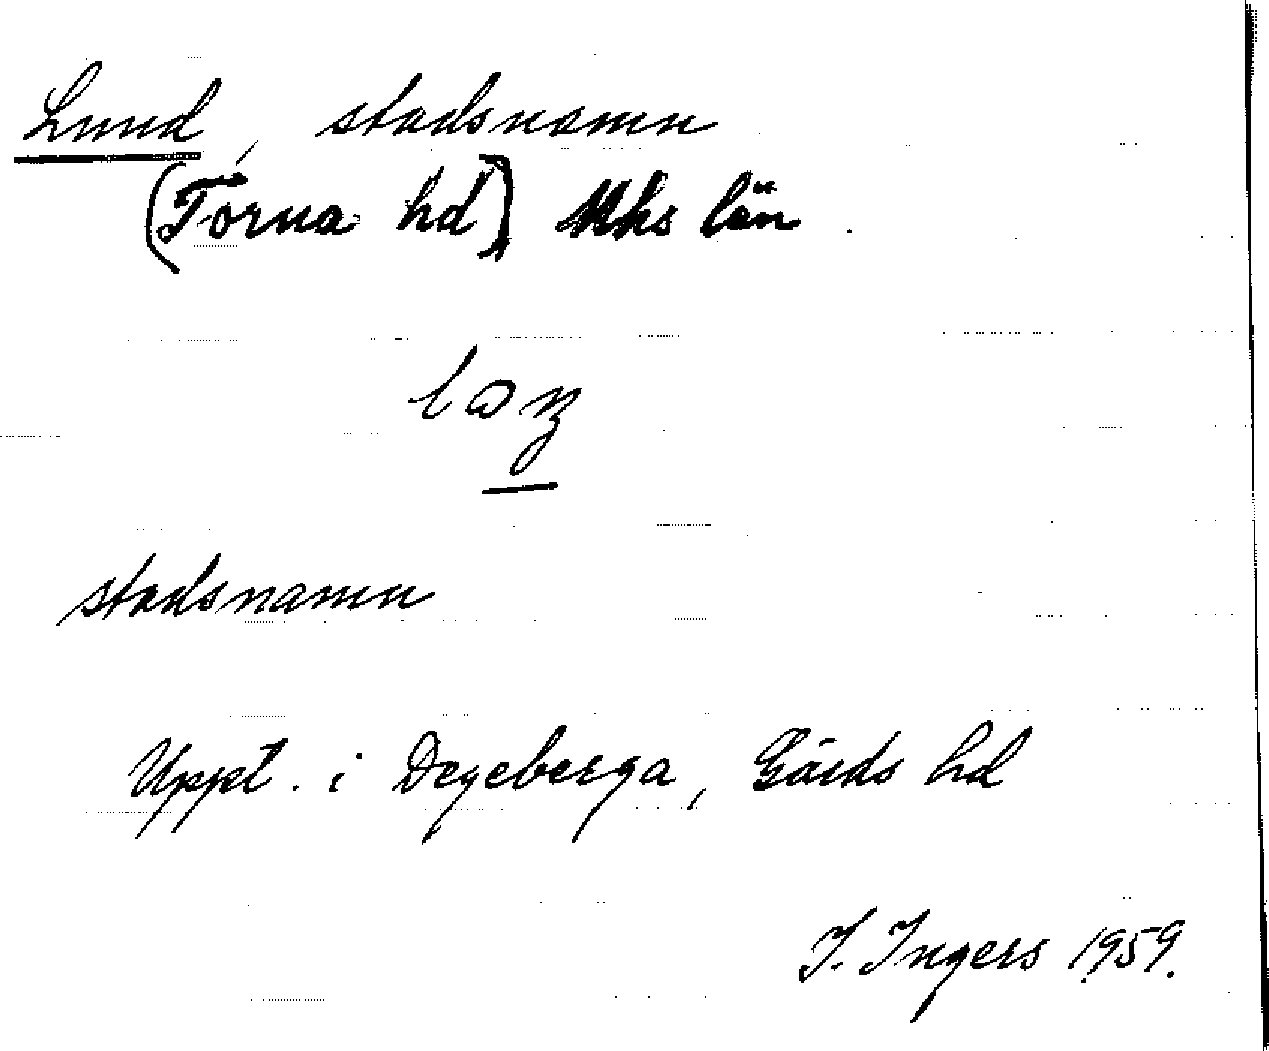 Lund, stadsnamn
(Torna hd) Mhs län.
stadsnamn
Uppt. i Degeberga, Gärds hd
I. Ingers 1959.